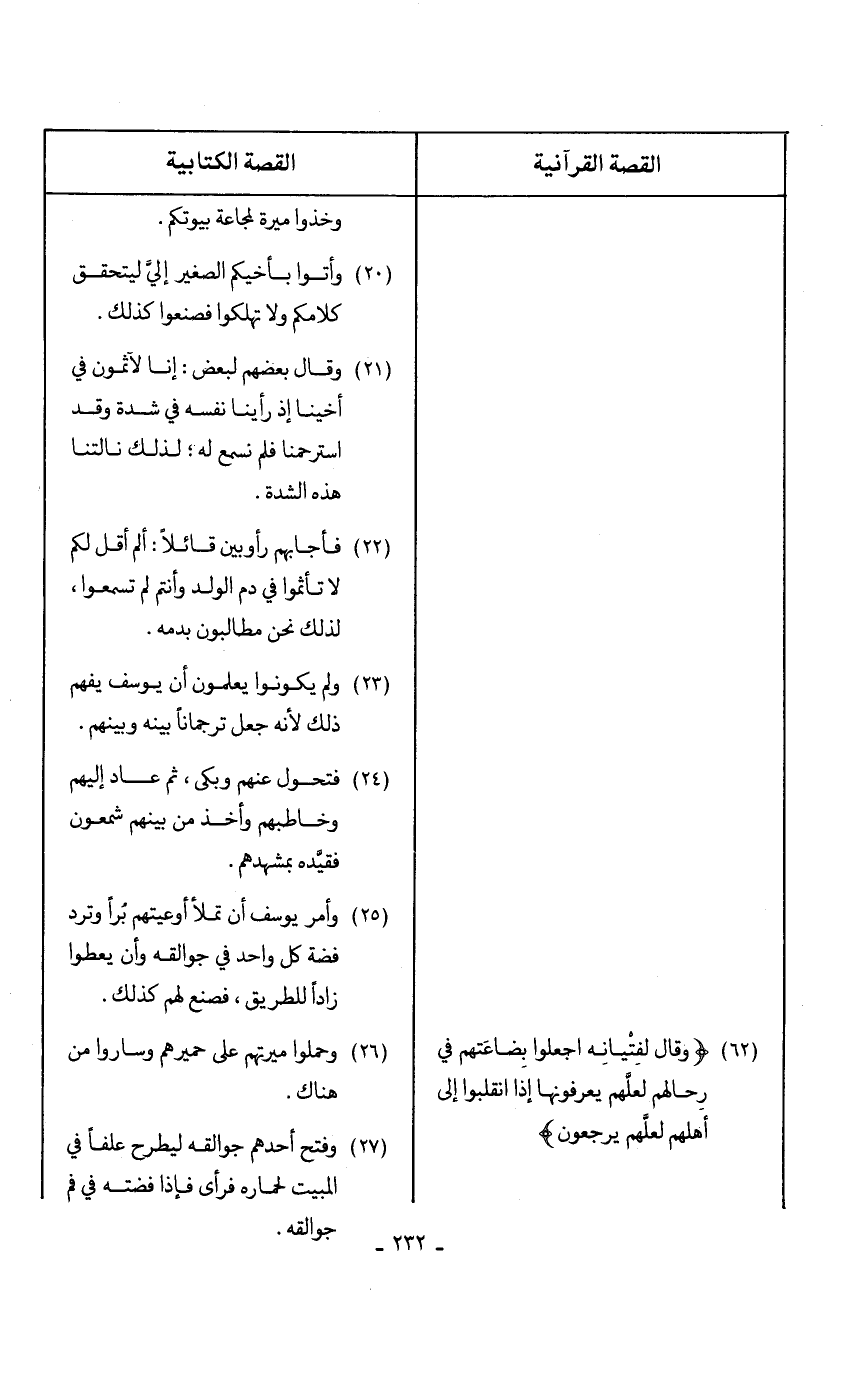 القصة القرآنية
القصة الكتابية
(٦٢) ﴿ وقال لفِتْيانِه اجعلوا بِضاعَتهم في
رِحالهم لعلَّهم يعرفونها إذا انقلبوا إلى
أهلهم لعلَّهم يرجعون﴾
وخذوا ميرة لمجاعة بيوتكم .
(٢٠) وأتوا بأخيكم الصغير إليَّ ليتحقق
كلامكم ولا تهلكوا فصنعوا كذلك .
(٢١) وقال بعضهم لبعض : إنا لآثمون في
أخينا إذ رأينا نفسه في شدة وقد
استرحمنا فلم نسمع له ؛ لذلك نالتنا
هذه الشدة .
(٢٢) فأجابهم رأوبين قائلاً : ألم أقل لكم
لا تأثموا في دم الولد وأنتم لم تسمعوا ،
لذلك نحن مطالبون بدمه .
(٢٣) ولم يكونوا يعلمون أن يوسف يفهم
ذلك لأنه جعل ترجماناً بينه وبينهم .
(٢٤) فتحول عنهم وبكى ، ثم عاد إليهم
وخاطبهم وأخذ من بينهم شمعون
فقيَّده بمشهدهم .
(٢٥) وأمر يوسف أن تملأ أوعيتهم بُراً وترد
فضة كل واحد في جوالقه وأن يعطوا
زاداً للطريق ، فصنع لهم كذلك .
(٢٦) وحملوا ميرتهم على حميرهم وساروا من
هناك .
(٢٧) وفتح أحدهم جوالقه ليطرح علفاً في
المبيت لحماره فرأى فإذا فضته في فم
جوالقه .
- ٢٣٢ -